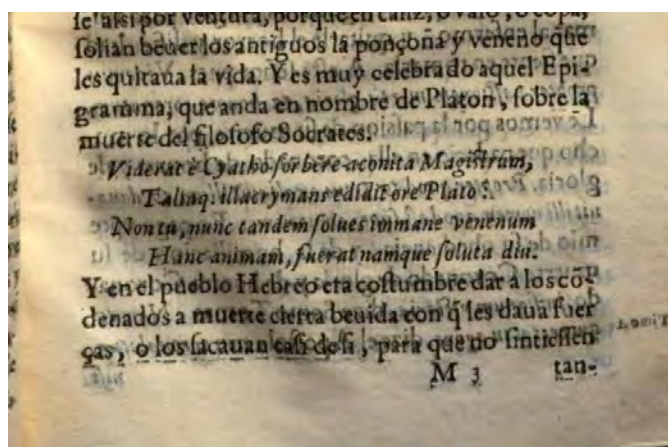 ſe aſsi por ventura, porque en caliz, o vaſo, o copa,
ſolian beuer los antiguos la ponçoña y veneno que
les quitaua la vida. Y es muy celebrado aquel Epi-
gramma, que anda en nombre de Platon, ſobre la
muerte del filoſofo Socrates.
Viderat è Cyatho ſorbere aconita Magiſtrum,
Taliaq. illacrymans edidit ore Plato:
Non tu, nunc tandem ſolues immane venenum
Hanc animam, fuerat namque ſoluta diu.
Y en el pueblo Hebreo era coſtumbre dar a los cō-
denados a muerte cierta beuida con q̄ les daua fuer
ças, o los ſacauan caſi de ſi, para que no ſintieſſen
M 3 tan-